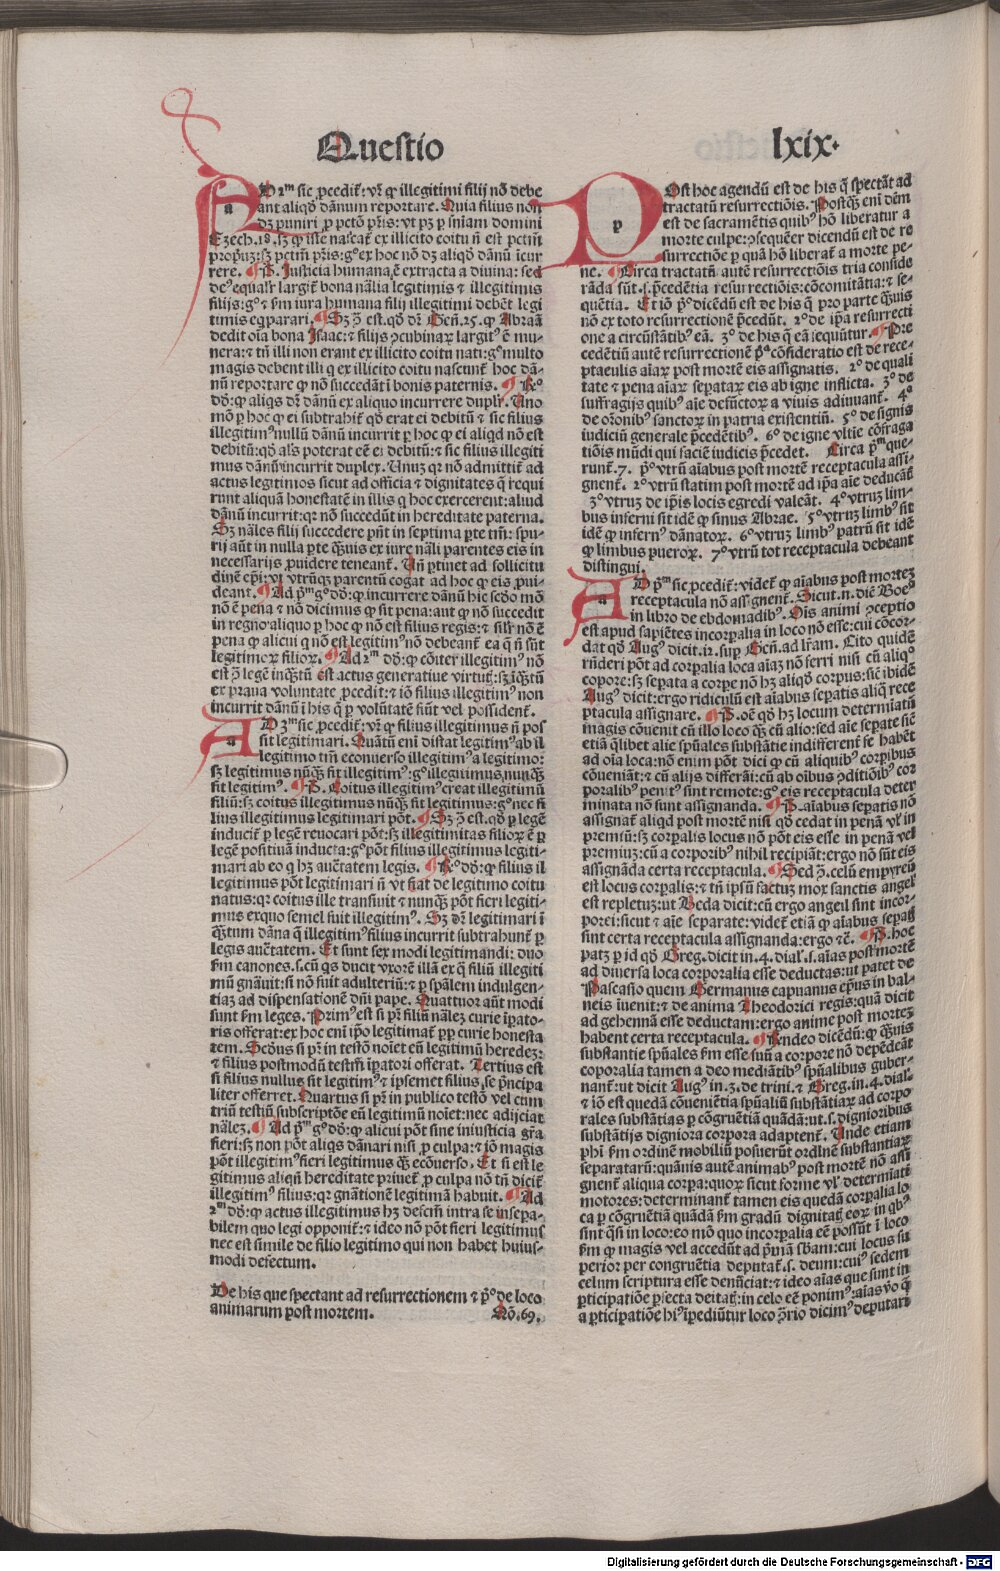 Questio lxix.
D 2m sic ꝓcedit᷑: vr̃ ꝙ illegitimi filij nõ debe
ant aliqd̃ dãnum reportare. Quia filius non
dz puniri ꝓ pctõ pr̃is: vt pz ꝑ sniam domini
Ezech.18. sz ꝙ iste nascat᷑ ex illicito coitu nõ est pctm̃
ꝓpriuz: sz pctm̃ pr̃is: gº ex hoc nõ dz aliqd̃ dãnũ icur
rere. ¶ P. Justicia humana ẽ extracta a diuina: sed
deꝰ equalr̃ largit᷑ bona nãlia legitimis ⁊ illegitimis
filijs: gº ⁊ ẜm iura humana filij illegitimi debẽt legi
timis eqparari. ¶ Sz ɔ̃ est. qd̃ dr̃ Geñ.25. ꝙ Abraã
dedit oĩa bona Isaac: ⁊ filijs ɔcubinaꝝ largitꝰ ẽ mu-
nera: ⁊ tñ illi non erant ex illicito coitu nati: gº multo
magis debent illi q ex illicito coitu nascunt᷑ hoc dã-
nũ reportare ꝙ nõ succedãt i bonis paternis. ¶ Rº
dõ: ꝙ aliqs dr̃ dãnũ ex aliquo incurrere duplr̃. Uno
mõ ꝑ hoc ꝙ ei subtrahit᷑ qd̃ erat ei debitũ ⁊ sic filius
illegitimꝰ nullũ dãnũ incurrit ꝑ hoc ꝙ ei aliqd nõ est
debitũ: qd̃ als̃ poterat eẽ ei debitũ: ⁊ sic filius illegiti
mus dãnũ incurrit duplex. Unuz qr nõ admittit᷑ ad
actus legitimos sicut ad officia ⁊ dignitates q̃ requi
runt aliquã honestatẽ in illis q hoc exercerent: aliud
dãnũ incurrit: qr nõ succedũt in hereditate paterna.
Sz nãles filij succedere pñt in septima ꝑte tm̃: spu-
rij aũt in nulla ꝑte q̃uis ex iure nãli parentes eis in
necessarijs ꝓuidere teneant᷑. Uñ ꝑtinet ad sollicitu
dinẽ ep̃i: vt vtrũq parentũ cogat ad hoc ꝙ eis ꝓui-
deant. ¶ Ad pm gº dõ: ꝙ incurrere dãnũ hic secdõ mõ
nõ ẽ pena ⁊ nõ dicimus ꝙ sit pena: aut ꝙ nõ succedit
in regno aliquo ꝑ hoc ꝙ nõ est filius regis: ⁊ silr̃ nõ ẽ
pena ꝙ alicui q nõ est legitimꝰ nõ debeant᷑ ea q̃ ñ sũt
legitimoꝝ filioꝝ. ¶ Ad 2m dõ: ꝙ cõiter illegitimꝰ nõ
est ɔ̃ legẽ inq̃tũ est actus generatiue virtut: sz iq̃tũ
ex praua voluntate ꝓcedit: ⁊ iõ filius illegitimꝰ non
incurrit dãnũ i his q̃ ꝑ volũtatẽ fiũt vel possident᷑.
D 3m sic ꝓcedit᷑: vr̃ ꝙ filius illegitimus ñ pos
sit legitimari. Quãtũ eni distat legitimꝰ ab il
legitimo tm̃ econuerso illegitimꝰ a legitimo:
sz legitimus nũq̃ fit illegitimꝰ: gº illegitimus nunq̃
fit legitimꝰ. ¶ P. Coitus illegitimꝰ creat illegitimũ
filiũ: sz coitus illegitimus nũq̃ fit legitimus: gº nec fi
lius illegitimus legitimari põt. ¶ Sz ɔ̃ est. qd̃ ꝑ legẽ
inducit᷑ ꝑ legẽ reuocari põt: sz illegitimitas filioꝝ ẽ ꝑ
legẽ positiuã inducta: gº põt filius illegitimus legiti-
mari ab eo q hz auctatem legis. ¶ Rº dõ: ꝙ filius il
legitimus põt legitimari ñ vt fiat de legitimo coitu
natus: qr coitus ille transiuit ⁊ nunq̃ põt fieri legiti-
mus exquo semel fuit illegitimꝰ. Sz dr̃ legitimari i
q̃tum dãna q̃ illegitimꝰ filius incurrit subtrahunt᷑ ꝑ
legis auctatem. Et sunt sex modi legitimandi: duo
ẜm canones. s. cũ qs ducit vxorẽ illã ex q̃ filiũ illegiti
mũ gñauit: si nõ fuit adulteriũ: ⁊ ꝑ sp̃alem indulgen-
tiaz ad dispensationẽ dñi pape. Quattuor aũt modi
sunt ẜm leges. Primꝰ est si pr̃ filiũ nãlez curie ipato-
ris offerat: ex hoc eni ipo legitimat᷑ ꝓp curie honesta
tem. Secũdus si pr̃ in testõ noiet eũ legitimũ heredez:
⁊ filius postmodũ testm̃ ipatori offerat. Tertius est
si filius nullus sit legitimꝰ ⁊ ipsemet filius se pr̃ncipa
liter offerret. Quartus si pr̃ in publico testõ vel cum
triũ testiũ subscriptõe eũ legitimũ noiet: nec adijciat
nãlez. ¶ Ad pm gº dõ: ꝙ alicui põt sine iniusticia gr̃a
fieri: sz non põt aliqs dãnari nisi ꝓ culpa: ⁊ iõ magis
põt illegitimꝰ fieri legitimus q̃ ecõuerso. Et si est le
gitimus aliqñ hereditate priuet᷑ ꝓ culpa nõ tñ dicit᷑
illegitimꝰ filius: qr gnãtionẽ legitimã habuit. ¶ Ad
2m dõ: ꝙ actus illegitimus hz defcm̃ intra se insepa-
bilem quo legi opponit᷑: ⁊ ideo nõ põt fieri legitimus
nec est simile de filio legitimo qui non habet huius-
modi defectum.
De his que spectant ad resurrectionem ⁊ pº de loco
animarum post mortem. Nõ.69.
Ost hoc agendũ est de his q̃ spectãt ad
tractatũ resurrectiõis. Postq̃ eni dcm̃
est de sacramẽtis quibꝰ hõ liberatur a
morte culpe: ɔsequẽter dicendũ est de re
surrectiõe ꝑ quã hõ liberat᷑ a morte pe-
ne. ¶ Circa tractatũ autẽ resurrectiõis tria conside
rãda sũt. s. pr̃cedẽtia resurrectiõis: cõcomitãtia: ⁊ se-
quẽtia. Et iõ pº dicẽdũ est de his q̃ pro parte q̃uis
nõ ex toto resurrectionẽ p̃cedũt. 2º de ip̃a resurrecti
one a circũstãtibꝰ eã. 3º de his q̃ eã sequũtur. ¶ Pre
cedẽtiũ autẽ resurrectionẽ pª cõsideratio est de rece-
ptaculis aiaꝝ post mortẽ eis assignatis. 2º de quali
tate ⁊ pena aiaꝝ separataꝝ eis ab igne inflicta. 3º de
suffragijs quibꝰ aie defũctoꝝ a viuis adiuuant᷑. 4º
de oronibꝰ sanctoꝝ in patria existentiũ. 5º de signis
iudiciũ generale p̃cedẽtibꝰ. 6º de igne vltie cõflagra
tiõis mũdi qui faciẽ iudicis p̃cedet. Circa pm que-
runt᷑.7. pº vtrũ aiabus post mortẽ receptacula assi-
gnent᷑. 2º vtrũ statim post mortẽ ad ipa aie deducãt᷑
3º vtruz de ip̃is locis egredi valeãt. 4º vtruz lim-
bus inferni sit idẽ ꝙ sinus Abrae. 5º vtruz limbꝰ sit
idẽ ꝙ infernꝰ dãnatoꝝ. 6º vtruz limbꝰ patrũ sit idẽ
ꝙ limbus pueroꝝ. 7º vtrũ tot receptacula debeant
distingui.
D pm sic ꝓcedit᷑: videt᷑ ꝙ aiabus post mortez
receptacula nõ assignent᷑. Sicut. n. dic̃ Boeꝰ
in libro de ebdomadibꝰ. Ois animi ɔceptio
est apud sapiẽtes incorꝑalia in loco nõ esse: cui cõcor-
dat qd̃ Augꝰ dicit.12. suꝑ Geñ. ad lr̃am. Cito quidẽ
rñderi põt ad corꝑalia loca aiaz nõ ferri nisi cũ aliqº
corpore: sz separata a corpe nõ hz aliqd̃ corpus: sic̃ ibidẽ
Augꝰ dicit: ergo ridiculũ est aiabus sepatis aliq̃ rece
ptacula assignare. ¶ P. oẽ qd̃ hz locum determiatũ
magis cõuenit cũ illo loco q̃ cũ alio: sed aie sepate sic̃
etiã q̃libet alie spũales substãtie indifferent᷑ se habẽt
ad oia loca: nõ enim põt dici ꝙ cũ aliquibꝰ corꝑibus
cõueniãt: ⁊ cũ alijs differãt: cũ ab oibus ɔditiõibꝰ cor
poralibꝰ penitꝰ sint remote: gº eis receptacula deter
minata nõ sunt assignanda. ¶ P. aiabus sepatis nõ
assignat᷑ aliqd post mortẽ nisi qd̃ cedat in penã vl̃ in
premiũ: sz corꝑalis locus nõ põt eis esse in penã vel
premiuz: cũ a corporibꝰ nihil recipiãt: ergo nõ sũt eis
assignãda certa receptacula. ¶ Sed ɔ̃. celũ empyreũ
est locus corꝑalis: ⁊ tñ ipsũ factuz mox sanctis angel
est repletuz: vt Beda dicit: cũ ergo angeli sint incor-
porei: sicut ⁊ aie separate: videt᷑ etiã ꝙ aiabus separat
sint certa receptacula assignanda: ergo ⁊c. ¶ P. hoc
patz ꝑ id qd̃ Greg. dicit in.4. dial. s. aias post mortẽ
ad diuersa loca corporalia esse deductas: vt patet de
Pascasio quem Germanus capuanus ep̃us in bal-
neis iuenit: ⁊ de anima Theodorici regis: quã dicit
ad gehennã esse deductam: ergo anime post mortez
habent certa receptacula. ¶ Rñdeo dicẽdũ: ꝙ q̃uis
substantie spũales ẜm esse suũ a corpore nõ depẽdeãt
corporalia tamen a deo mediãtibꝰ spũalibus guber-
nant᷑: vt dicit Augꝰ in.3. de trini. ⁊ Greg. in.4. dial.
⁊ iõ est quedã cõuenientia spũaliũ substãtiaꝝ ad corpo
rales substãtias ꝑ cõgruẽtiã quãdã: vt. s. dignioribus
substãtijs digniora corpora adaptent᷑. Unde etiam
phi ẜm ordinẽ mobiliũ posuerũt ordinẽ substantiaꝝ
separatarũ: quãuis autẽ animabꝰ post mortẽ nõ assi
gnent᷑ aliqua corpa: quoꝝ sicut forme vl̃ determiati
motores: determinant᷑ tamen eis quedã corꝑalia lo
ca ꝑ cõgruẽtiã quãdã ẜm gradũ dignitat eoꝝ in qbꝰ
sint q̃si in loco: eo mõ quo incorꝑalia eẽ possũt i loco
ẜm ꝙ magis vel accedũt ad primã sbam: cui locus su
perior per congruẽtia deputat᷑. s. deum: cuiꝰ sedem
celum scriptura esse denũciat: ⁊ ideo aias que sunt in
ꝑticipatiõe ꝑfecta deitat: in celo eẽ ponimꝰ: aias vo q̃
a ꝑticipatiõe hiꝰ ipediũtur loco ɔ̃rio dicimꝰ deputari
Digitalisierung gefördert durch die Deutsche Forschungsgemeinschaft - DFG